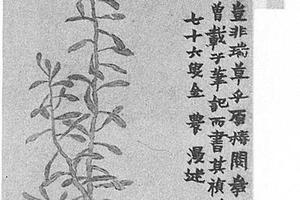 豈非瑞草乎石梅閣
曾載于筆記而書其禎
七十六叟金農漫述